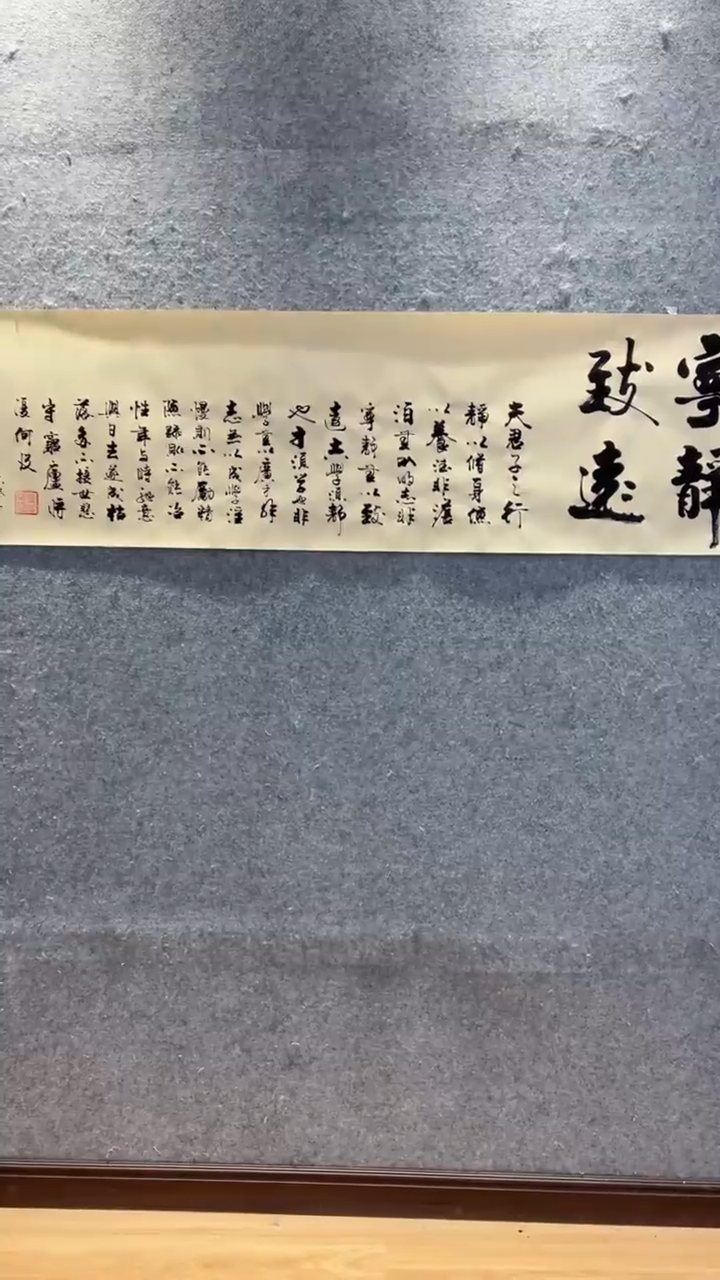 寧靜
致遠
夫君子之行
靜以修身儉
以養德非澹
泊無以明志非
寧靜無以致
遠夫學須靜
也才須學也非
學無以廣才非
志無以成學淫
慢則不能勵精
險躁則不能冶
性年与時馳意
與日去遂成枯
落多不接世悲
守窮廬將
復何及